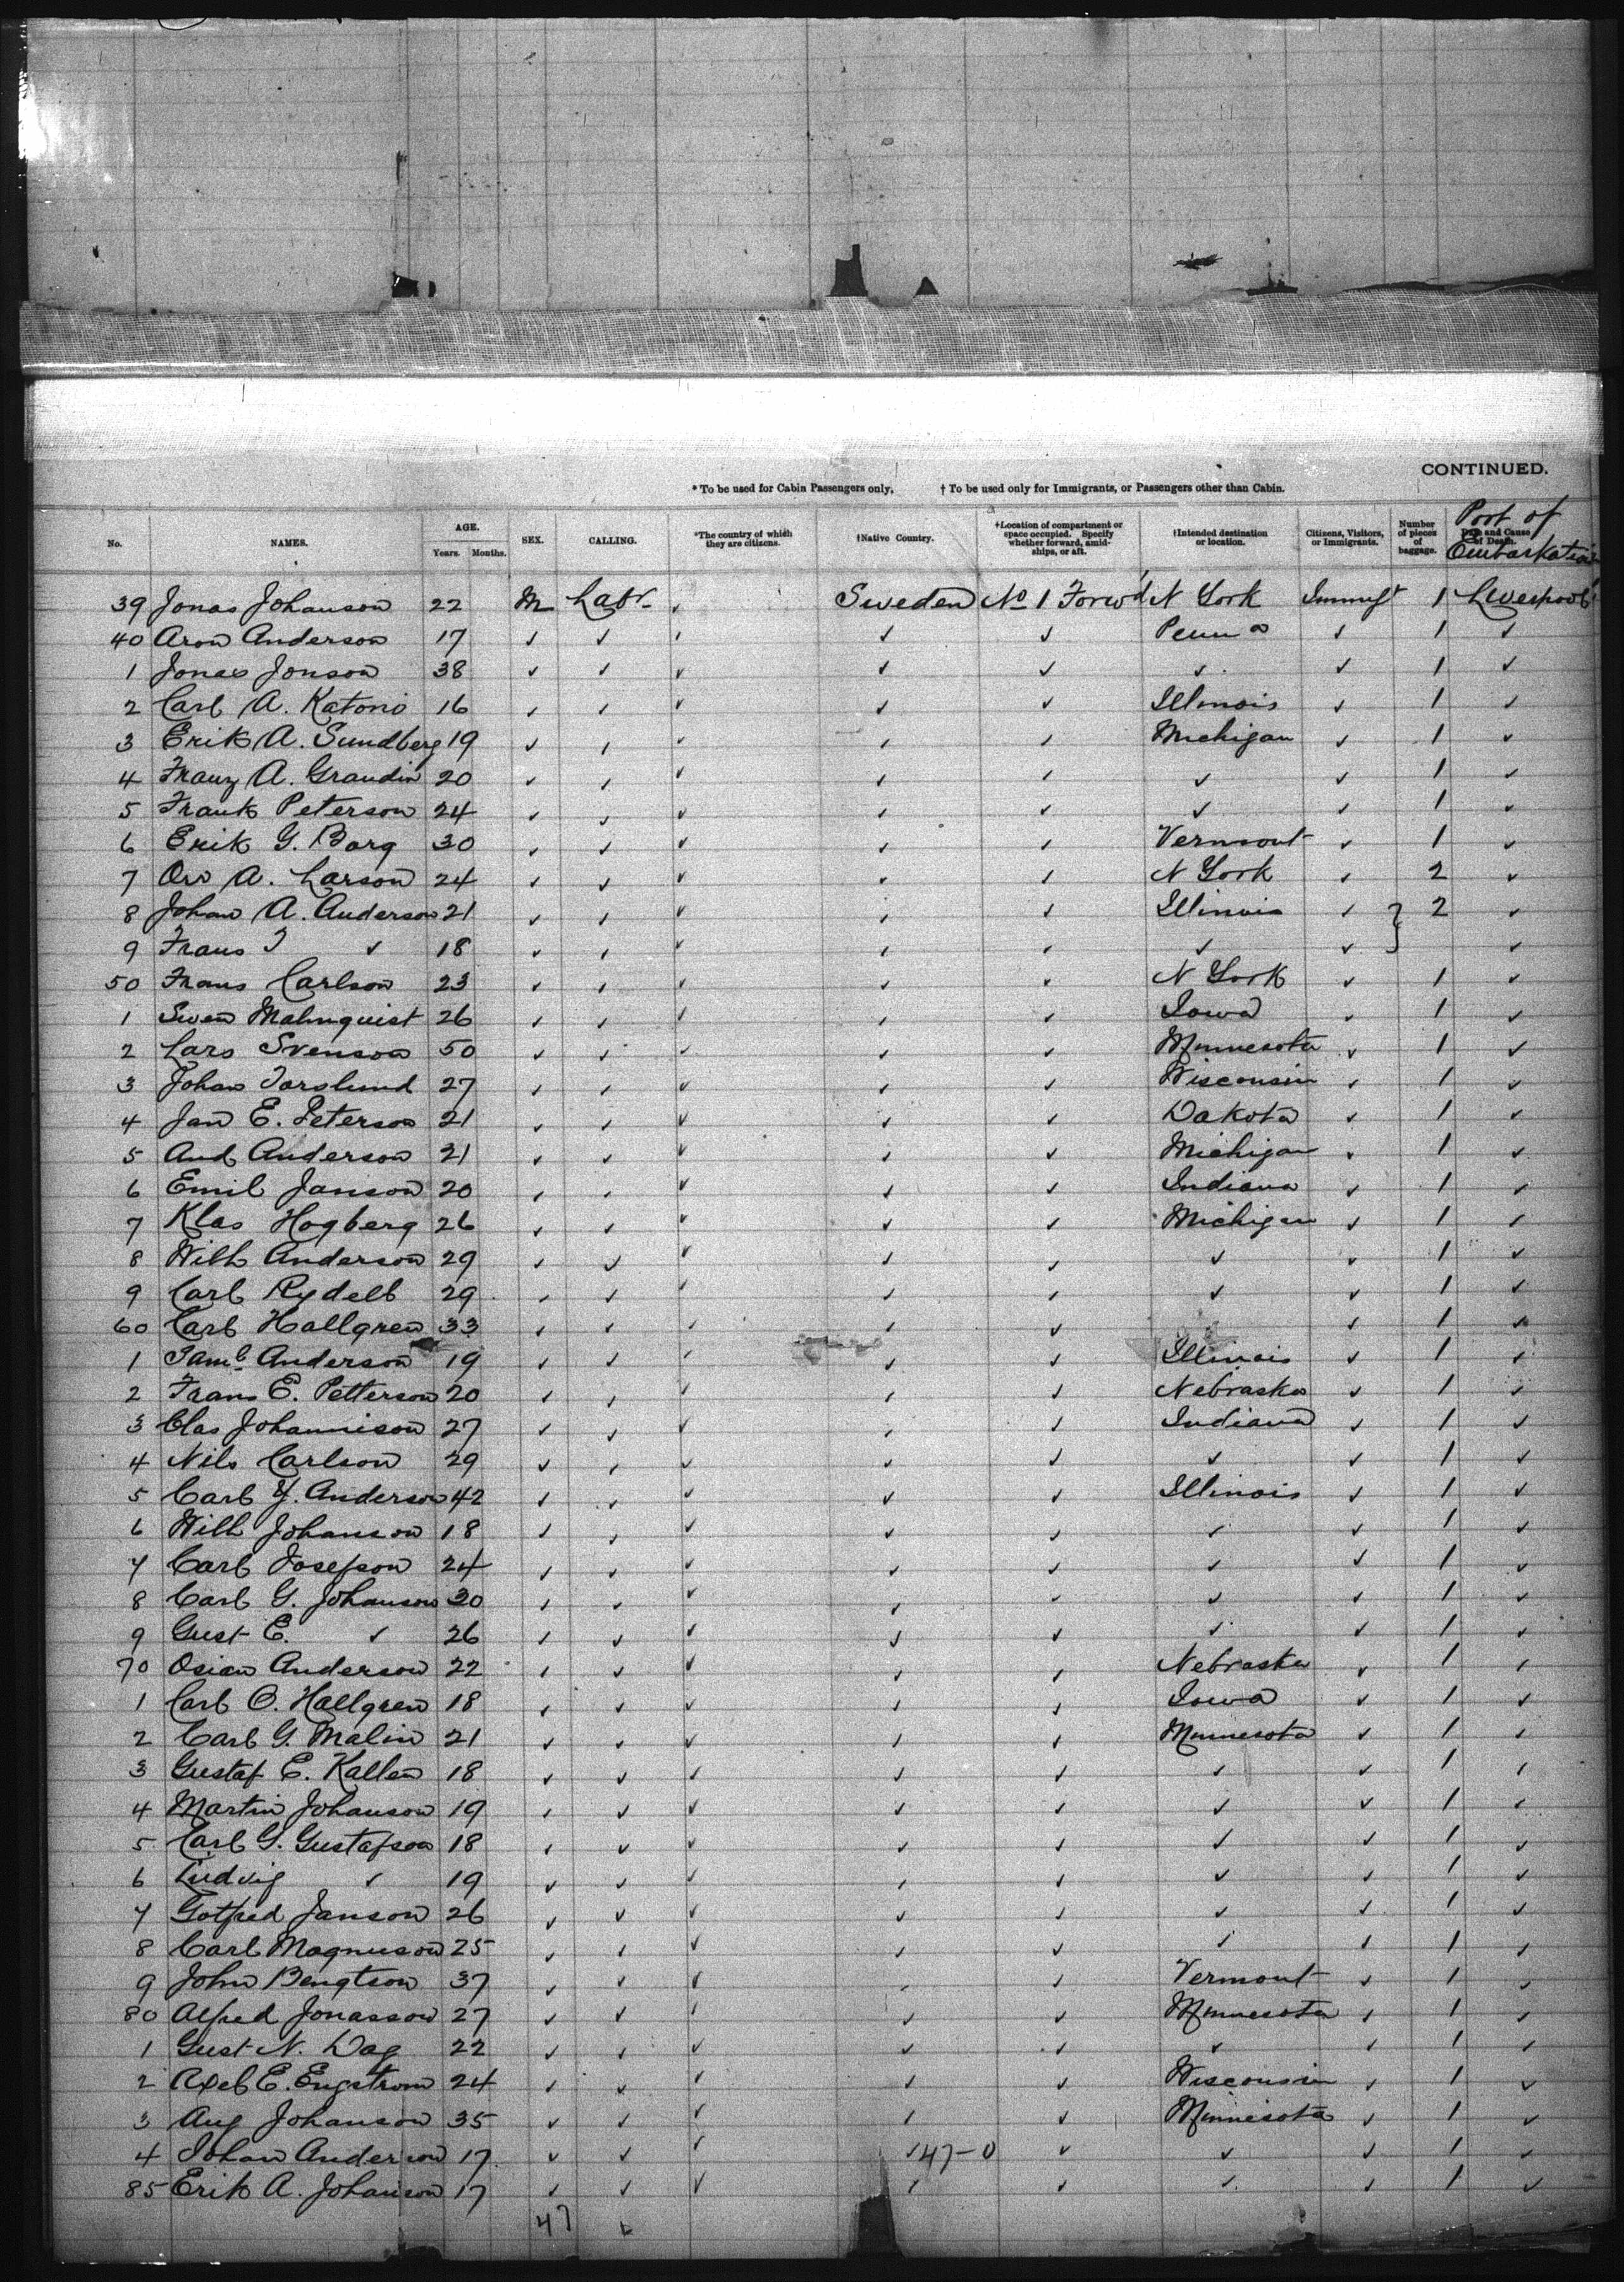 CONTINUED.
*To be used for Cabin Passengers only. † To be used only for Immigrants, or Passengers other than Cabin.
No. NAMES. AGE. Years. Months. SEX. CALLING. *The country of which they are citizens. †Native Country. †Location of compartment or space occupied. Specify whether forward, amidships, or aft. †Intended destination or location. Citizens, Visitors, or Immigrants. Number of pieces of baggage. Date and Cause of Death. Port of Embarkation
39 Jonas Johanson 22 M Labr Sweden No 1 Forw'd N York Immigt 1 Liverpool
40 Aron Anderson 17 ✓ ✓ ✓ ✓ ✓ Penna ✓ 1 ✓
1 Jonas Jonson 38 ✓ ✓ ✓ ✓ ✓ ✓ ✓ 1 ✓
2 Carl A. Katono 16 ✓ ✓ ✓ ✓ ✓ Illinois ✓ 1 ✓
3 Erik A. Sundberg 19 ✓ ✓ ✓ ✓ ✓ Michigan ✓ 1 ✓
4 Franz A. Grandin 20 ✓ ✓ ✓ ✓ ✓ ✓ ✓ 1 ✓
5 Frank Peterson 24 ✓ ✓ ✓ ✓ ✓ ✓ ✓ 1 ✓
6 Erik G. Borg 30 ✓ ✓ ✓ ✓ ✓ Vermont ✓ 1 ✓
7 A. Larson 24 ✓ ✓ ✓ ✓ ✓ N York ✓ 2 ✓
8 Johan A. Anderson 21 ✓ ✓ ✓ ✓ ✓ Illinois ✓ } 2 ✓
9 Frans T ✓ 18 ✓ ✓ ✓ ✓ ✓ ✓ ✓ ✓
50 Frans Carlson 23 ✓ ✓ ✓ ✓ ✓ N York ✓ 1 ✓
1 Swen Malmquist 26 ✓ ✓ ✓ ✓ ✓ Iowa ✓ 1 ✓
2 Lars Svenson 50 ✓ ✓ ✓ ✓ ✓ Minnesota ✓ 1 ✓
3 Johan Torslund 27 ✓ ✓ ✓ ✓ ✓ Wisconsin ✓ 1 ✓
4 Jan E. Peterson 21 ✓ ✓ ✓ ✓ ✓ Dakota ✓ 1 ✓
5 And Anderson 21 ✓ ✓ ✓ ✓ ✓ Michigan ✓ 1 ✓
6 Emil Janson 20 ✓ ✓ ✓ ✓ ✓ Indiana ✓ 1 ✓
7 Klas Hogberg 26 ✓ ✓ ✓ ✓ ✓ Michigan ✓ 1 ✓
8 Wilh Anderson 29 ✓ ✓ ✓ ✓ ✓ ✓ ✓ 1 ✓
9 Carl Rydell 29 ✓ ✓ ✓ ✓ ✓ ✓ ✓ 1 ✓
60 Carl Hallgren 33 ✓ ✓ ✓ ✓ ✓ ✓ 1 ✓
1 Saml Anderson 19 ✓ ✓ ✓ ✓ ✓ Illinois ✓ 1 ✓
2 Frans E. Petterson 20 ✓ ✓ ✓ ✓ ✓ Nebraska ✓ 1 ✓
3 Clas Johannison 27 ✓ ✓ ✓ ✓ ✓ Indiana ✓ 1 ✓
4 Nils Carlson 29 ✓ ✓ ✓ ✓ ✓ ✓ ✓ 1 ✓
5 Carl Y. Anderson 42 ✓ ✓ ✓ ✓ ✓ Illinois ✓ 1 ✓
6 Wilh Johanson 18 ✓ ✓ ✓ ✓ ✓ ✓ ✓ 1 ✓
7 Carl Josefson 24 ✓ ✓ ✓ ✓ ✓ ✓ ✓ 1 ✓
8 Carl G. Johanson 30 ✓ ✓ ✓ ✓ ✓ ✓ ✓ 1 ✓
9 Gust E. ✓ 26 ✓ ✓ ✓ ✓ ✓ ✓ ✓ 1 ✓
70 Osian Anderson 22 ✓ ✓ ✓ ✓ ✓ Nebraska ✓ 1 ✓
1 Carl O. Hallgren 18 ✓ ✓ ✓ ✓ ✓ Iowa ✓ 1 ✓
2 Carl G. Malin 21 ✓ ✓ ✓ ✓ ✓ Minnesota ✓ 1 ✓
3 Gustaf E. Kallen 18 ✓ ✓ ✓ ✓ ✓ ✓ ✓ 1 ✓
4 Martin Johanson 19 ✓ ✓ ✓ ✓ ✓ ✓ ✓ 1 ✓
5 Carl G. Gustafson 18 ✓ ✓ ✓ ✓ ✓ ✓ ✓ 1 ✓
6 Ludvig ✓ 19 ✓ ✓ ✓ ✓ ✓ ✓ ✓ 1 ✓
7 Gotfred Janson 26 ✓ ✓ ✓ ✓ ✓ ✓ ✓ 1 ✓
8 Carl Magnuson 25 ✓ ✓ ✓ ✓ ✓ ✓ ✓ 1 ✓
9 John Bengtson 37 ✓ ✓ ✓ ✓ ✓ Vermont ✓ 1 ✓
80 Alfred Jonasson 27 ✓ ✓ ✓ ✓ ✓ Minnesota ✓ 1 ✓
1 Gust N. Dag 22 ✓ ✓ ✓ ✓ ✓ ✓ ✓ 1 ✓
2 Axel E. Engstrom 24 ✓ ✓ ✓ ✓ ✓ Wisconsin ✓ 1 ✓
3 Aug Johanson 35 ✓ ✓ ✓ ✓ ✓ Minnesota ✓ 1 ✓
4 Johan Anderson 17 ✓ ✓ ✓ ✓ 47-0 ✓ ✓ ✓ 1 ✓
85 Erik A. Johanson 17 ✓ ✓ ✓ ✓ ✓ ✓ ✓ 1 ✓
47